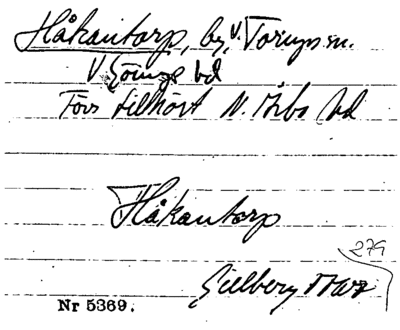 Håkantorp, by, V. Torups sn.
V Göinge hd
Förr tillhört N. Åsbo hd
Håkantorp
279
Gillberg
Nr 5369.